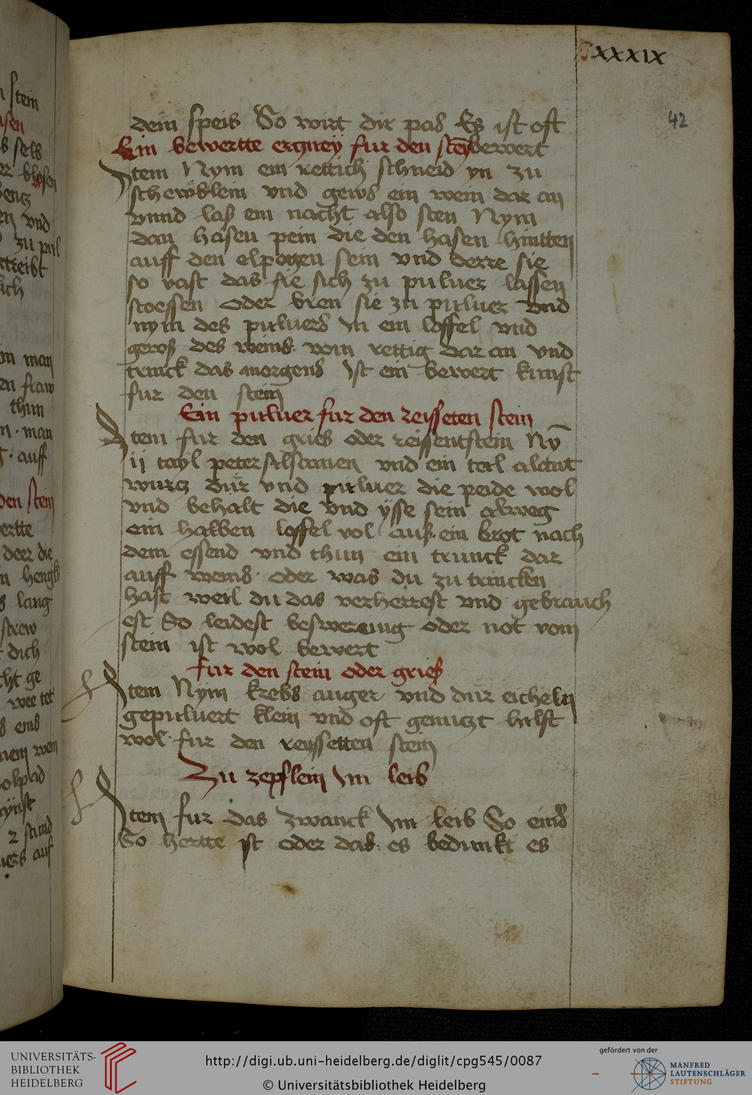 xxxix
42
dein speis So wirt dir pas Es ist offt
Ein bewertte ertzney fur den stein bewert
Item Nym ein rettich schneid yn zu
scheyblein vnd gews ein wein dar an
vnnd laß ein nacht also sten Nym
dan hasen pein die den hasen hintten
auff den elpogen sein vnd derre sie
so vast das sie sich zu puluer lassen
stoessen oder bren sie zu puluer vnd
nym des puluers In ein loffel vnd
geuß des weins vom rettig dar an vnd
trinck das morgens Ist ein bewert kunst
fur den stein
Ein puluer fur den reissetten stein
Item fur den gries oder reissentstein Ny
ij tayl petersilsamen vnd ein teil
wurcz dur vnd puluer die peide wol
vnd behalt die vnd ysse sein alweg
ein halben loffel vol auß ein brot nach
dem essend vnd thun ein trunck dar
auff weins oder was du zu trincken
hast weil du das verherrest vnd gebrauch
est So leidest beswerung oder not vom
stein ist wol bewert
fur den stein oder grieß
Item Nym krebs auger vnd dur eicheln
gepuluert klein vnd oft genutzt hilft
wol fur den reyssetten stein
Zu zepflein Im leib
Item fur das zwanck Im leib So eins
So hertte ist oder das es bedunkt es
stein
vnd
auff
lang
dich
UNIVERSITÄTS-
BIBLIOTHEK
HEIDELBERG
http://digi.ub.uni-heidelberg.de/diglit/cpg545/0087
© Universitätsbibliothek Heidelberg
gefördert von der
MANFRED
LAUTENSCHLÄGER
STIFTUNG